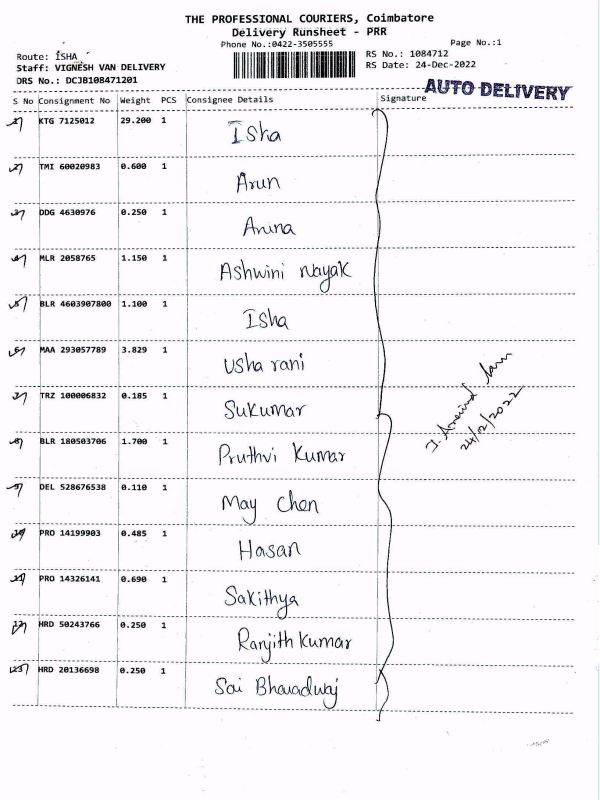 THE PROFESSIONAL COURIERS, Coimbatore
Delivery Runsheet - PRR
Phone No.:0422-3505555
Page No.:1
Route: ISHA
RS No.: 1084712
Staff: VIGNESH VAN DELIVERY
RS Date: 24-Dec-2022
DRS No.: DCJB108471201
AUTO DELIVERY
S No Consignment No Weight PCS Consignee Details Signature
1 KTG 7125012 29.200 1 Isha
2 TMI 60020983 0.600 1 Arun
3 DDG 4630976 0.250 1 Anina
4 MLR 2058765 1.150 1 Ashwini Nayak
5 BLR 4603907800 1.100 1 Isha
6 MAA 293057789 3.829 1 Usha rani
7 TRZ 100006832 0.185 1 Sukumar
8 BLR 180503706 1.700 1 Pruthvi Kumar
9 DEL 528676538 0.110 1 May Chen
10 PRO 14199903 0.485 1 Hasan
11 PRO 14326141 0.690 1 Sakithya
12 HRD 50243766 0.250 1 Ranjith Kumar
13 HRD 20136698 0.250 1 Sai Bharadwaj
24/12/2022